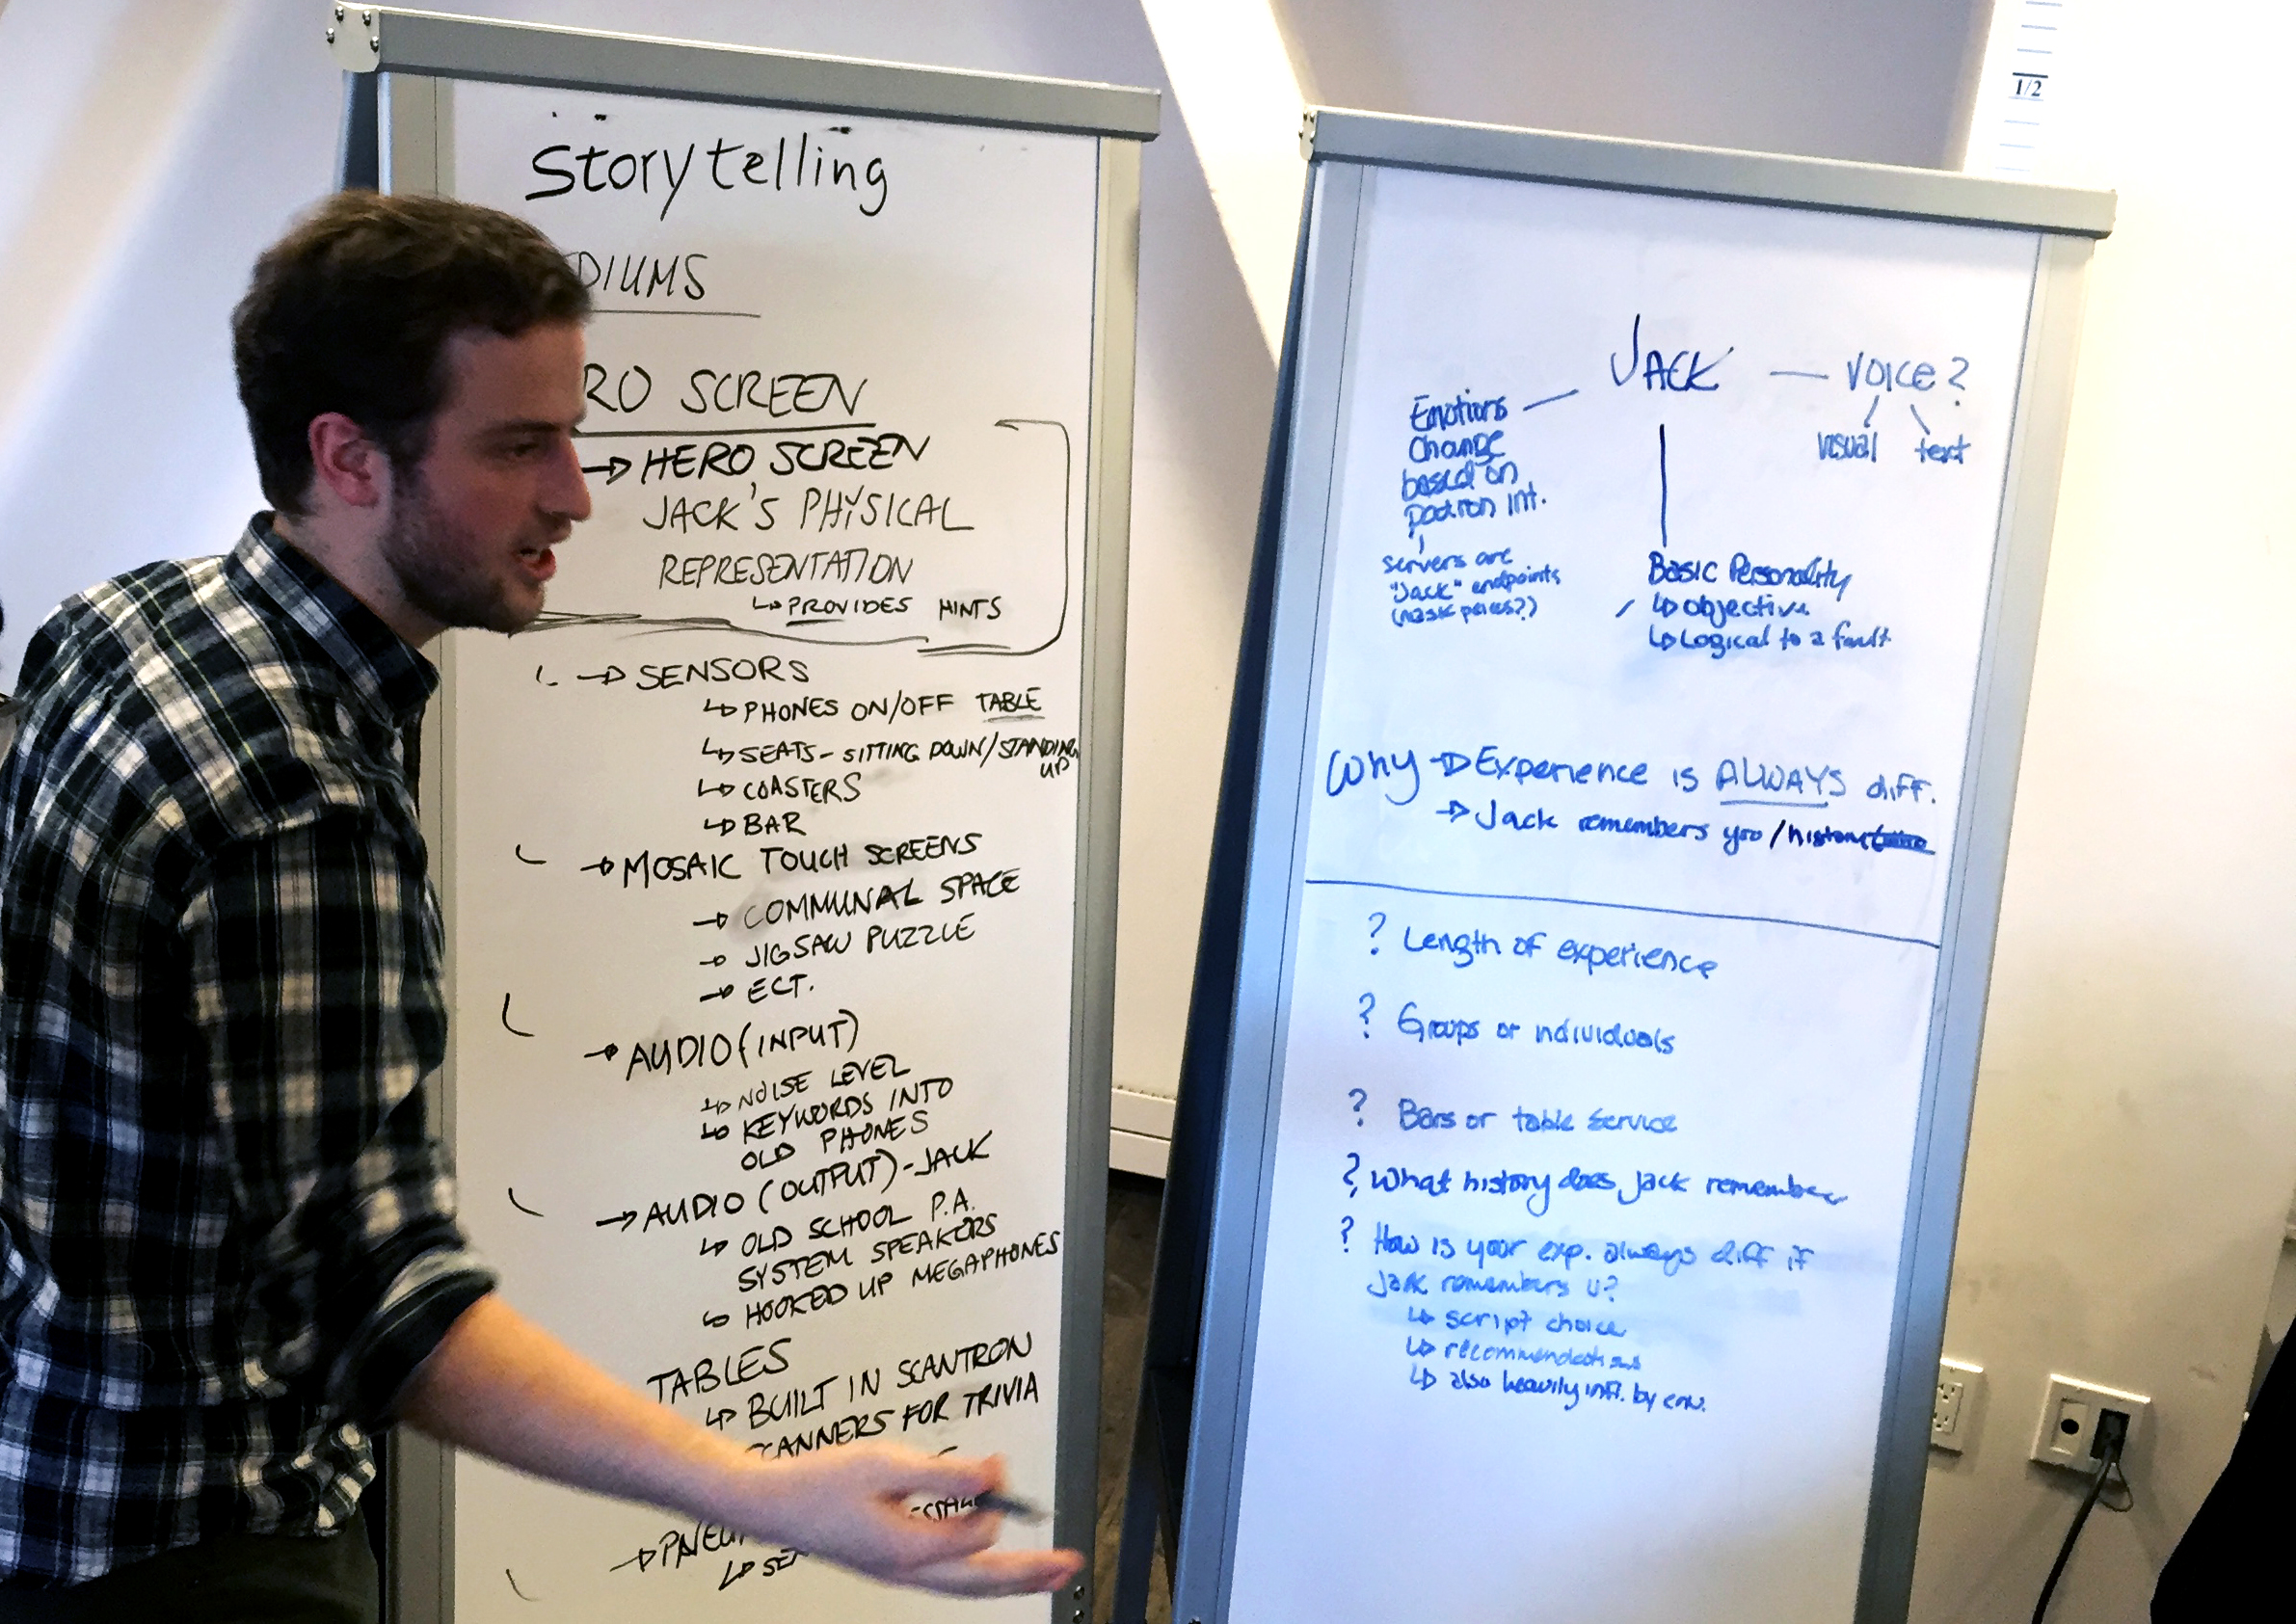 Storytelling
DIUMS
RO SCREEN
→ HERO SCREEN
JACK'S PHYSICAL
REPRESENTATION
↳ PROVIDES HINTS
→ SENSORS
↳ PHONES ON/OFF TABLE
↳ SEATS - SITTING DOWN/STANDING
UP
↳ COASTERS
↳ BAR
→ MOSAIC TOUCH SCREENS
→ COMMUNAL SPACE
→ JIGSAW PUZZLE
→ ECT.
→ AUDIO (INPUT)
↳ NOISE LEVEL
↳ KEYWORDS INTO
OLD PHONES
→ AUDIO (OUTPUT) - JACK
↳ OLD SCHOOL P.A.
SYSTEM SPEAKERS
↳ HOOKED UP MEGAPHONES
TABLES
↳ BUILT IN SCANTRON
CANNERS FOR TRIVIA
→ PNEU
↳ SE
JACK — VOICE?
visual text
Emotions
Change
based on
patron int.
servers are
"Jack" endpoints
Basic Personality
↳ objective
↳ Logical to a fault
Why → Experience is ALWAYS diff.
→ Jack remembers you / history
? Length of experience
? Groups or individuals
? Bars or table service
? What history does Jack remember
? How is your exp. always diff if
Jack remembers u?
↳ script choice
↳ recommendations
↳ also heavily infl. by env.
1/2